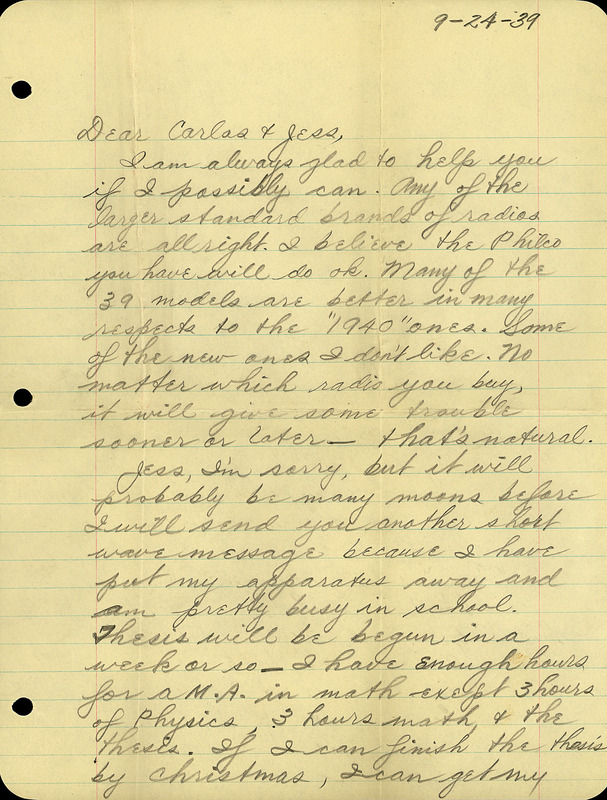 9-24-39
Dear Carlos & Jess,
I am always glad to help you
if I possibly can. Any of the
larger standard brands of radios
are allright. I believe the Philco
you have will do ok. Many of the
39 models are better in many
respects to the "1940" ones. Some
of the new ones I don't like. No
matter which radio you buy,
it will give some trouble
sooner or later — that's natural.
Jess, I'm sorry, but it will
probably be many moons before
I will send you another short
wave message because I have
put my apparatus away and
am pretty busy in school.
Thesis will be begun in a
week or so — I have enough hours
for a M.A. in math exept 3 hours
of Physics, 3 hours math & the
thesis. If I can finish the thesis
by christmas, I can get my